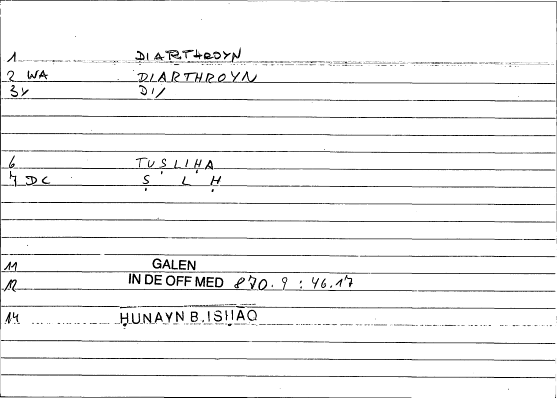 1 DIARTHROYN
2 WA DIARTHROYN
3y DI/
6 TUṢLIḤA
7 DC Ṣ L Ḥ
11 GALEN
12 IN DE OFF MED 870.9 : 46.17
14 ḤUNAYN B.ISḤĀQ